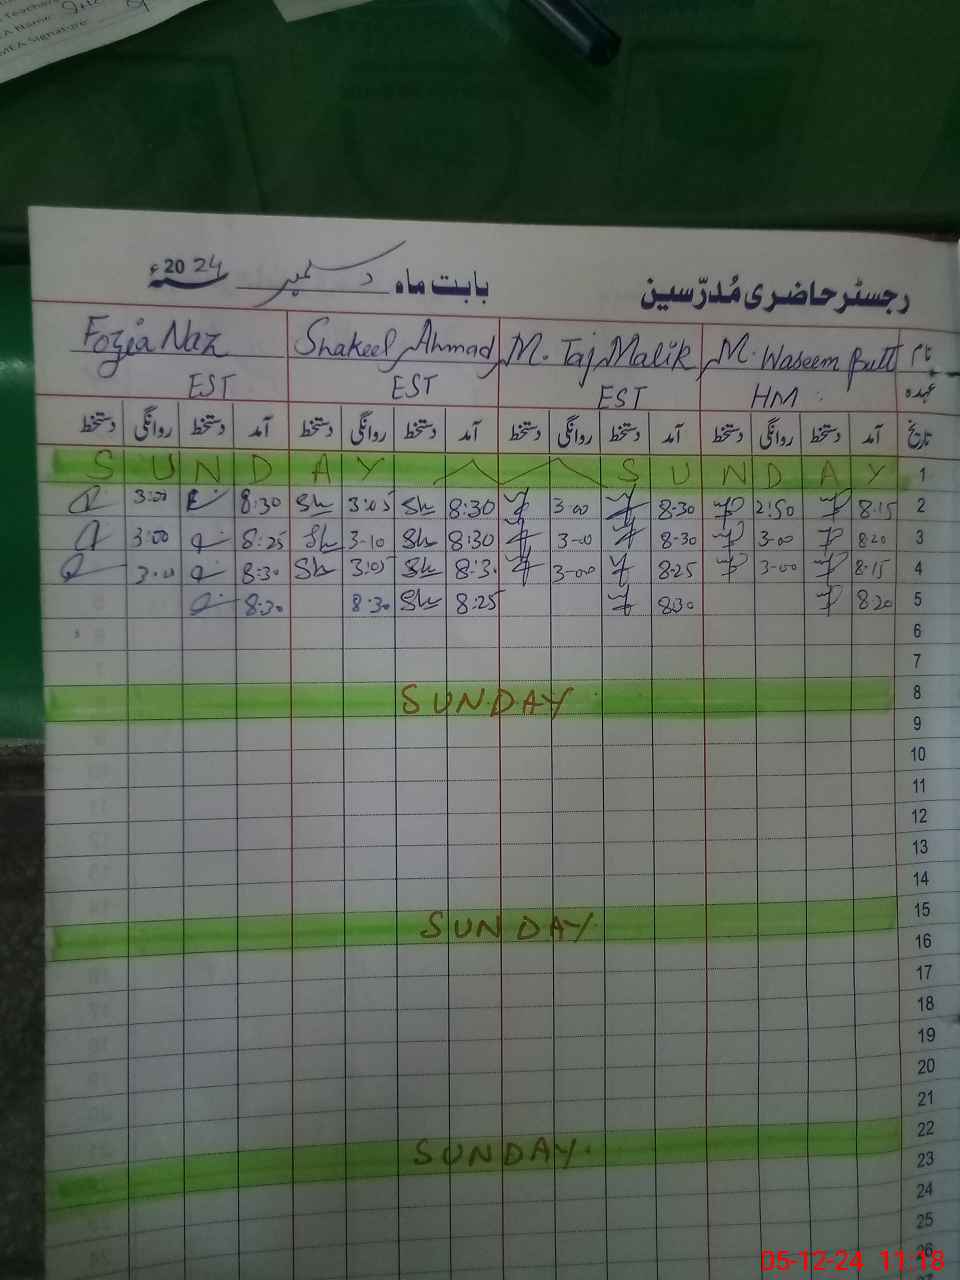 Teachers
EA Name
MEA Signature
رجسٹر حاضری مُدرّسین بابت ماہ دسمبر 2024ء
نام M. Waseem Butt M. Taj Malik Shakeel Ahmad Fozia Naz
عہدہ HM EST EST EST
تاریخ آمد دستخط روانگی دستخط آمد دستخط روانگی دستخط آمد دستخط روانگی دستخط آمد دستخط روانگی دستخط
1 S U N D A Y S U N D A Y
2 8:15 2:50 8:30 3-00 8:30 Sh 3:05 Sh 8:30 3:00
3 8:20 3-00 8-30 3-00 8:30 Sh 3-10 Sh 8:25 3:00
4 8-15 3-00 8:25 3-00 8:30 Sh 3:05 Sh 8:30 3:00
5 8:20 8:30 8:25 Sh 8:30 8:30
6
7
8 SUNDAY
9
10
11
12
13
14
15 SUNDAY
16
17
18
19
20
21
22 SUNDAY
23
24
25
26
05-12-24 11:18